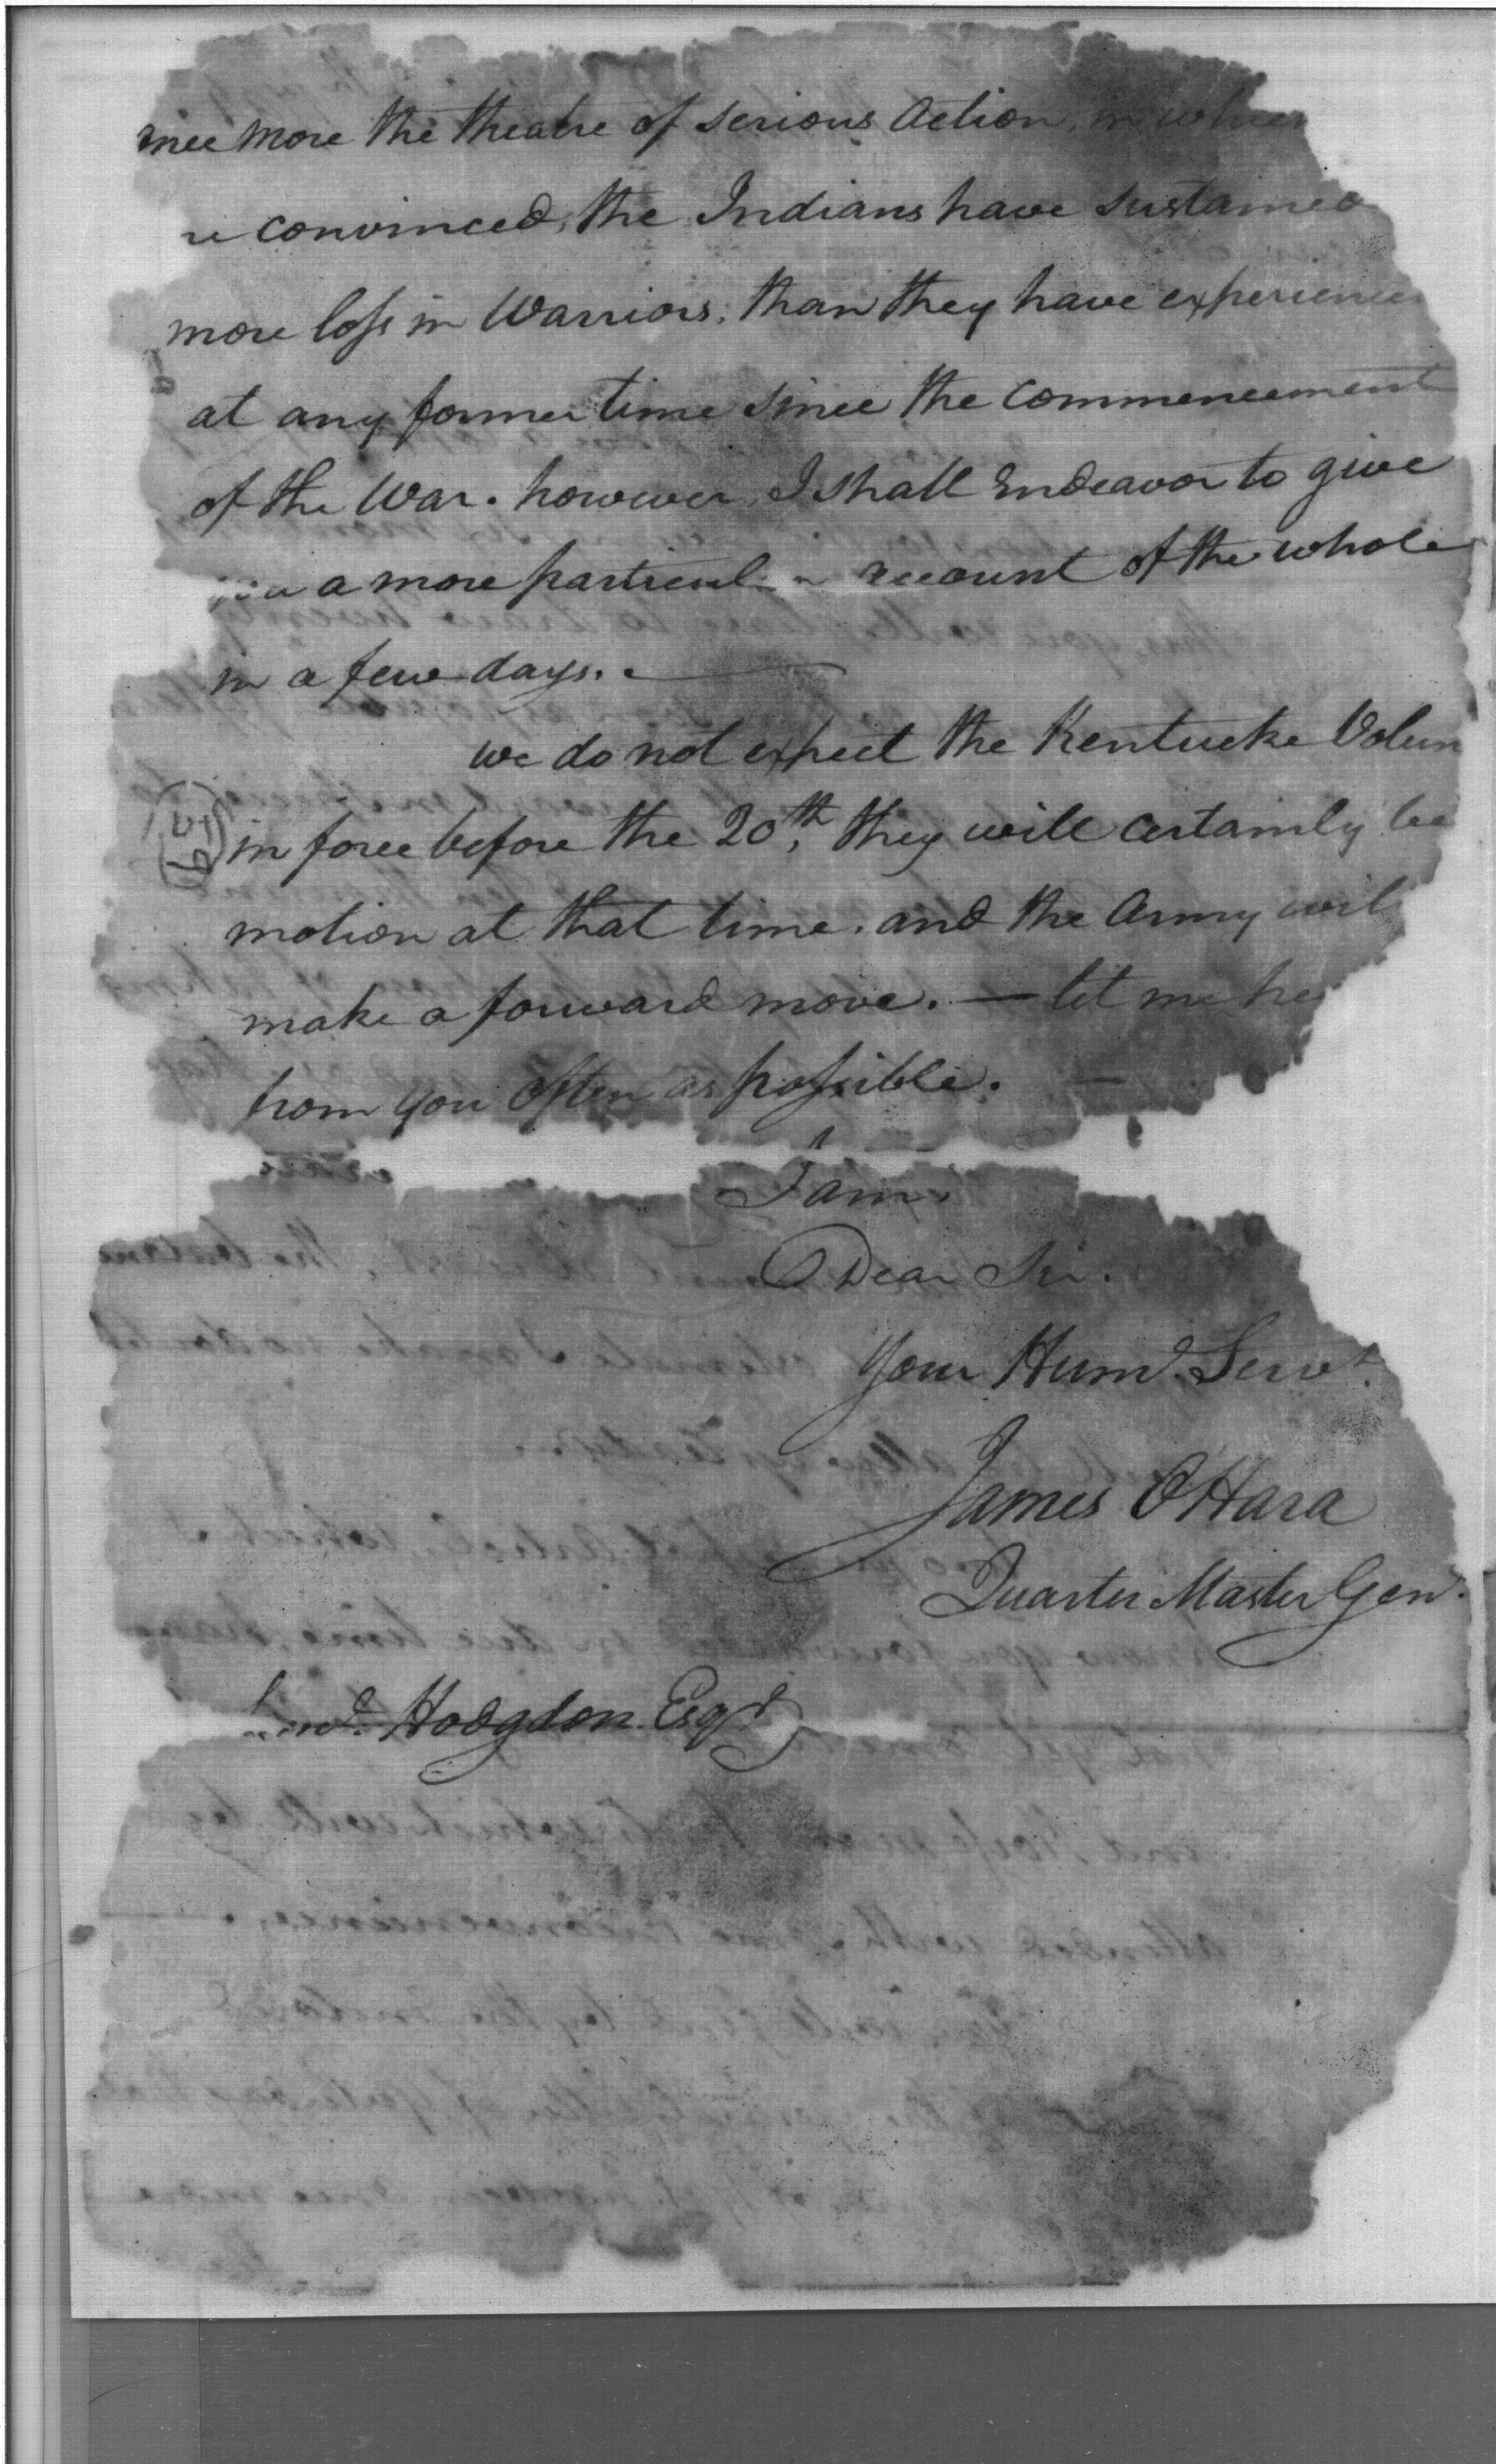 more the theatre of serious Action, in
convinced, the Indians have sustained
more loss in Warriors, than they have experience
at any former time since the commencement
of the War. however, I shall Endeavor to give
a more particul account of the whole
in a few days. —
we do not expect the Kentucke Volun
in force before the 20th, they will certainly be
motion at that time. and the Army wil
make a forward move. — let me he
from you often as possible. —
I am
Dear Sir.
Your Humd. Servt.
James OHara
Quarter Master Genl.
Hodgdon Esqr